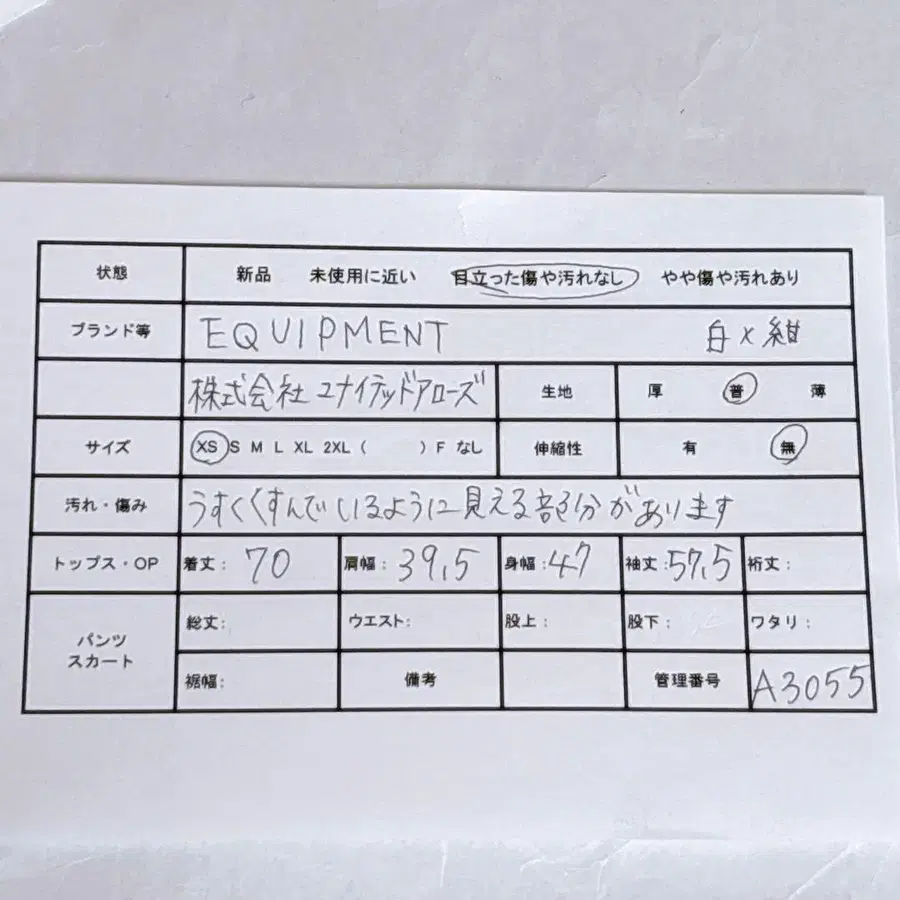 状態 新品 未使用に近い 目立った傷や汚れなし やや傷や汚れあり
ブランド等 EQUIPMENT 白×紺
株式会社ユナイテッドアローズ 生地 厚 普 薄
サイズ XS S M L XL 2XL ( ) F なし 伸縮性 有 無
汚れ・傷み うすくくすんでいるように見える部分があります
トップス・OP 着丈: 70 肩幅: 39.5 身幅: 47 袖丈: 57.5 裄丈:
パンツ スカート 総丈: ウエスト: 股上: 股下: ワタリ:
裾幅: 備考 管理番号 A3055